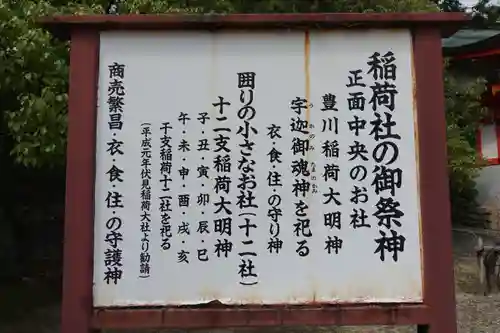 稲荷社の御祭神
正面中央のお社
豊川稲荷大明神
宇迦御魂神を祀る
うかのみたまのかみ
衣・食・住の守り神
囲りの小さなお社(十二社)
十二支稲荷大明神
子・丑・寅・卯・辰・巳
午・未・申・酉・戌・亥
干支稲荷十二社を祀る
(平成元年伏見稲荷大社より勧請)
商売繁昌・衣・食・住・の守護神